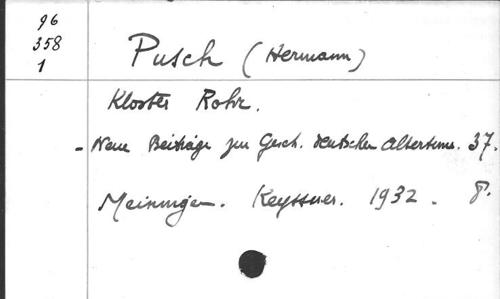 96
358
1
Pusch (Hermann)
Kloster Rohr.
- Neue Beiträge zur Gesch. deutschen Altertums. 37.
Meiningen. Keyssner. 1932. 8°.